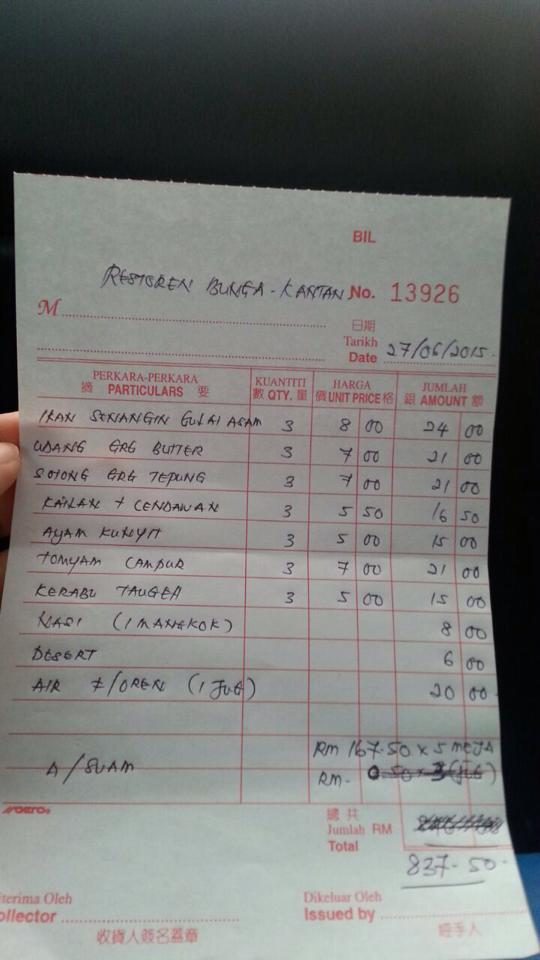 BIL
RESTOREN BUNGA-KANTAN No. 13926
M
日期
Tarikh
Date 27/06/2015
PERKARA-PERKARA KUANTITI HARGA JUMLAH
摘 PARTICULARS 要 數 QTY. 量 價 UNIT PRICE 格 銀 AMOUNT 額
IKAN SENANGIN GULAI ASAM 3 8 00 24 00
UDANG GRG BUTTER 3 7 00 21 00
SOTONG GRG TEPUNG 3 7 00 21 00
KAILAN + CENDAWAN 3 5 50 16 50
AYAM KUNYIT 3 5 00 15 00
TOMYAM CAMPUR 3 7 00 21 00
KERABU TAUGEH 3 5 00 15 00
NASI (1 MANGKOK) 8 00
DESERT 6 00
AIR /OREN (1 JUG) 20 00
RM 167.50 X 5 MEJA
A/SUAM RM- 0.50 X 3 (JUG)
總共
Jumlah RM
Total
837-50-
iterima Oleh Dikeluar Oleh
ollector Issued by
收貨人簽名蓋章 經手人